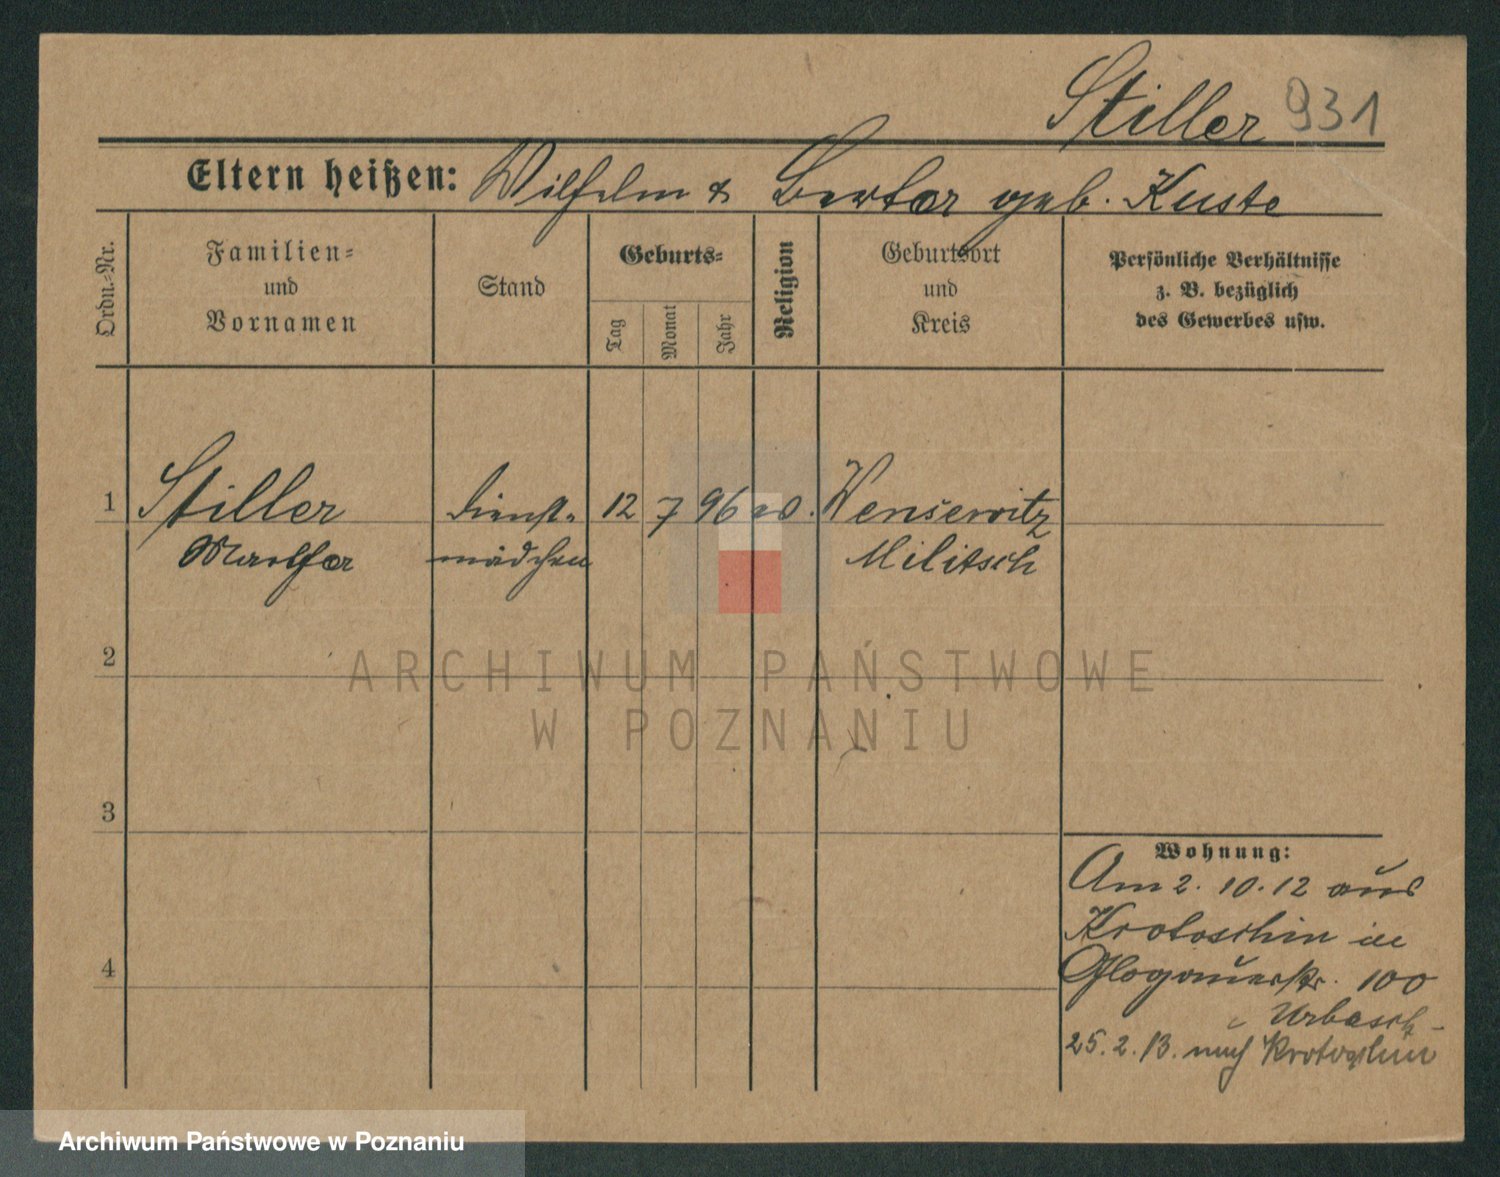 Stiller 931
Eltern heißen: Wilhelm & Berta geb. Kuste
Ordn.-Nr.
Familien-
und
Vornamen
Stand
Geburts-
Tag
Monat
Jahr
Religion
Geburtsort
und
Kreis
Persönliche Verhältnisse
z. B. bezüglich
des Gewerbes usw.
1 Stiller Dienst- 12 7 96 Wensewitz
Martha mädchen Militsch
2
3
4
Wohnung:
Am 2. 10. 12 aus
Krotoschin in
Glogauerstr. 100
Urbasch
25. 2. 13. nach Krotoschin
ARCHIWUM PAŃSTWOWE
W POZNANIU
Archiwum Państwowe w Poznaniu